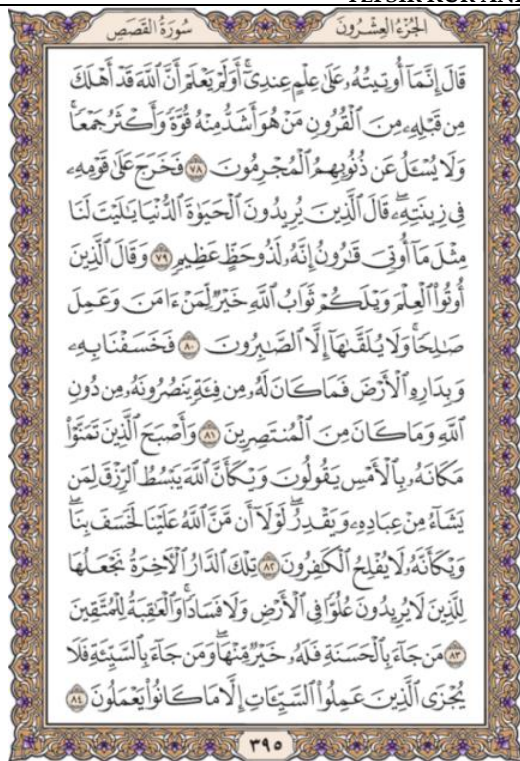 سُورَةُ الْقَصَصِ
الجُزْءُ العِشْرُونَ
قَالَ إِنَّمَآ أُوتِيتُهُۥ عَلَىٰ عِلْمٍ عِندِيٓۚ أَوَلَمْ يَعْلَمْ أَنَّ ٱللَّهَ قَدْ أَهْلَكَ
مِن قَبْلِهِۦ مِنَ ٱلْقُرُونِ مَنْ هُوَ أَشَدُّ مِنْهُ قُوَّةً وَأَكْثَرُ جَمْعًاۚ
وَلَا يُسْـَٔلُ عَن ذُنُوبِهِمُ ٱلْمُجْرِمُونَ ٧٨ فَخَرَجَ عَلَىٰ قَوْمِهِۦ
فِي زِينَتِهِۦۖ قَالَ ٱلَّذِينَ يُرِيدُونَ ٱلْحَيَوٰةَ ٱلدُّنْيَا يَٰلَيْتَ لَنَا
مِثْلَ مَآ أُوتِيَ قَٰرُونُ إِنَّهُۥ لَذُو حَظٍّ عَظِيمٍ ٧٩ وَقَالَ ٱلَّذِينَ
أُوتُوا۟ ٱلْعِلْمَ وَيْلَكُمْ ثَوَابُ ٱللَّهِ خَيْرٌ لِّمَنْ ءَامَنَ وَعَمِلَ
صَٰلِحًاۚ وَلَا يُلَقَّىٰهَآ إِلَّا ٱلصَّٰبِرُونَ ٨٠ فَخَسَفْنَا بِهِۦ
وَبِدَارِهِ ٱلْأَرْضَ فَمَا كَانَ لَهُۥ مِن فِئَةٍ يَنصُرُونَهُۥ مِن دُونِ
ٱللَّهِ وَمَا كَانَ مِنَ ٱلْمُنتَصِرِينَ ٨١ وَأَصْبَحَ ٱلَّذِينَ تَمَنَّوْا۟
مَكَانَهُۥ بِٱلْأَمْسِ يَقُولُونَ وَيْكَأَنَّ ٱللَّهَ يَبْسُطُ ٱلرِّزْقَ لِمَن
يَشَآءُ مِنْ عِبَادِهِۦ وَيَقْدِرُۖ لَوْلَآ أَن مَّنَّ ٱللَّهُ عَلَيْنَا لَخَسَفَ بِنَاۖ
وَيْكَأَنَّهُۥ لَا يُفْلِحُ ٱلْكَٰفِرُونَ ٨٢ تِلْكَ ٱلدَّارُ ٱلْءَاخِرَةُ نَجْعَلُهَا
لِلَّذِينَ لَا يُرِيدُونَ عُلُوًّا فِي ٱلْأَرْضِ وَلَا فَسَادًاۚ وَٱلْعَٰقِبَةُ لِلْمُتَّقِينَ
٨٣ مَن جَآءَ بِٱلْحَسَنَةِ فَلَهُۥ خَيْرٌ مِّنْهَاۖ وَمَن جَآءَ بِٱلسَّيِّئَةِ فَلَا
يُجْزَى ٱلَّذِينَ عَمِلُوا۟ ٱلسَّيِّـَٔاتِ إِلَّا مَا كَانُوا۟ يَعْمَلُونَ ٨٤
٣٩٥